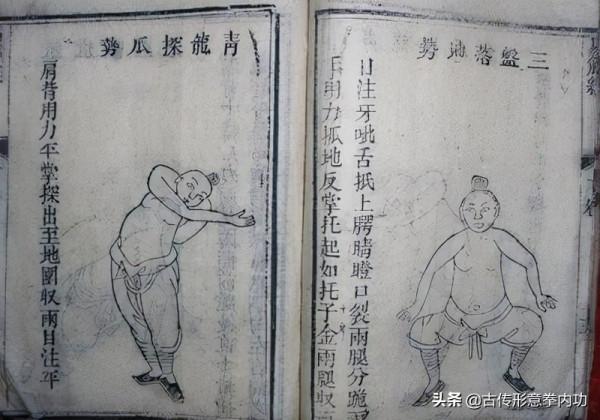 三盤落地勢
目注牙呲舌抵上腭睛瞪口裂兩腿分跪兩
手用力抓地反掌托起如托子金兩腿収
青龍探爪勢
肩背用力平掌探出至地圍収兩目注平
头条 @古传形意拳内功